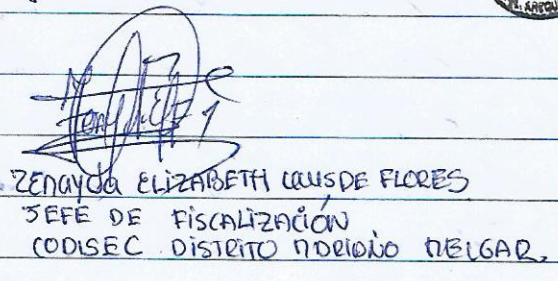 ZENAYDA ELIZABETH DE FLORES
JEFE DE FISCALIZACIÓN
CODISEC DISTRITO MARIANO MELGAR.